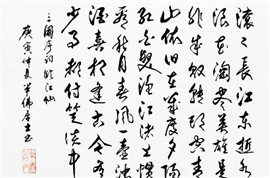 滚々長江東逝水
浪花淘尽英雄是
非成敗转頭空青
山依旧在几度夕陽
红白髮渔樵江渚上惯
看秋月春风一壶浊
酒喜相逢古今多
少事都付笑谈中
三国序词临江仙
庚寅仲夏半佛居士书